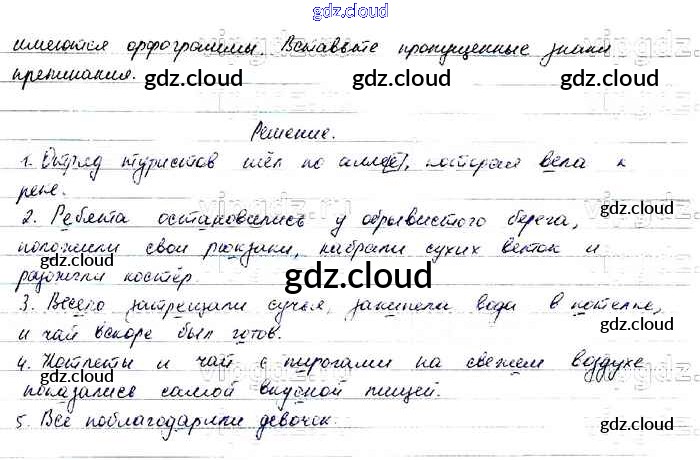 gdz.cloud
имеются орфограммы. Вставьте пропущенные знаки
препинания.
gdz.cloud gdz.cloud gdz.cloud
Решение.
1. Отряд туристов шёл по аллее, которая вела к
реке.
gdz.cloud
2. Ребята остановились у обрывистого берега,
положили свои рюкзаки, набрали сухих веток и
разожгли костёр.
gdz.cloud
3. Весело затрещали сучья, закипела вода в котелке,
и чай вскоре был готов.
gdz.cloud
4. Котлеты и чай с пирогами на свежем воздухе
показались самой вкусной пищей.
gdz.cloud gdz.cloud
5. Все поблагодарили девочек.
gdz.cloud